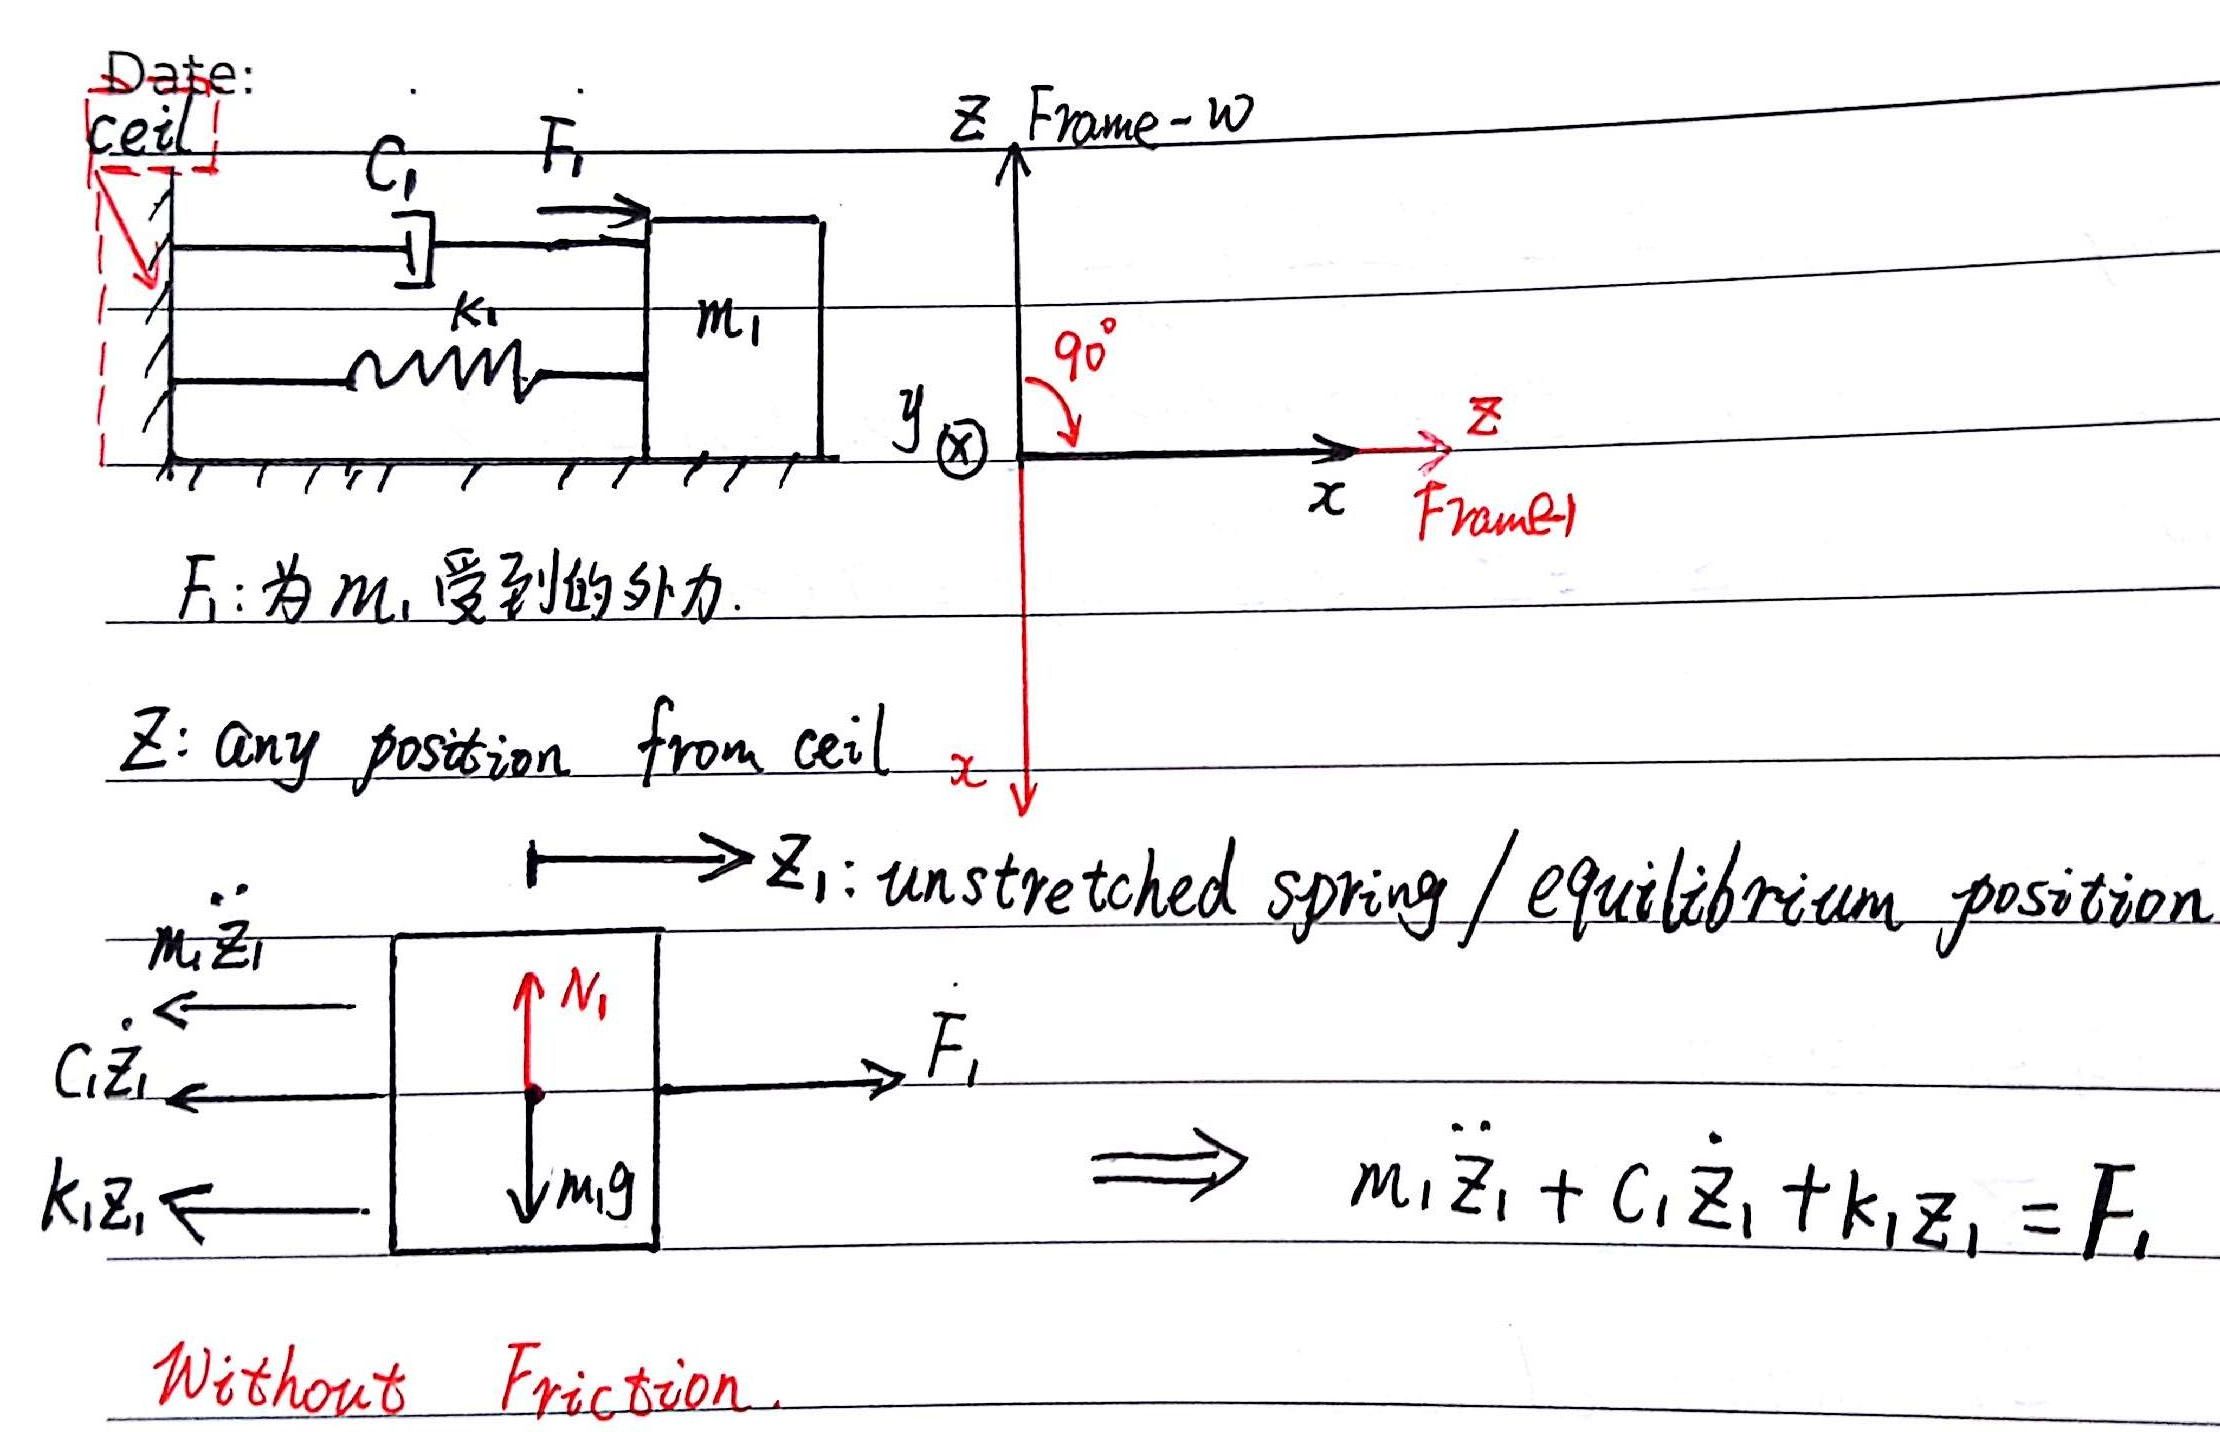 Date:
ceil
C₁ F₁
K₁
m₁
Z Frame-W
90°
y
Z
x
Frame-1
F₁: 为 m₁ 受到的外力.
Z: any position from ceil
x
Z₁: unstretched spring / equilibrium position
m₁z̈₁
N₁
C₁ż₁
F₁
k₁z₁
m₁g
⇒ m₁z̈₁ + C₁ż₁ + k₁z₁ = F₁
Without Friction.